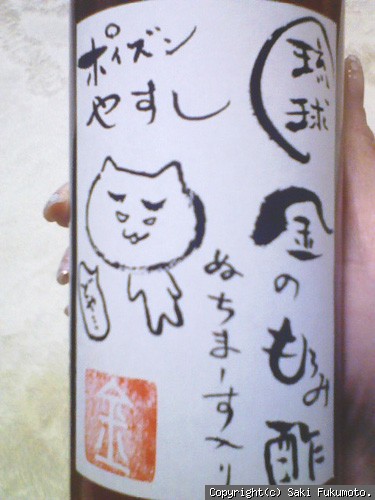 琉球
金のもろみ酢
ぬちまーす入り
ポイズン
やすし
金
Copyright(c) Saki Fukumoto.